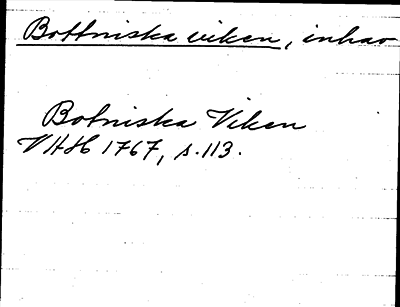 Bottniska viken, inhav
Botniska Viken
VHH 1767, s. 113.